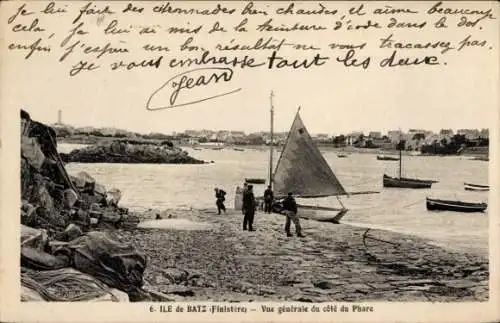 je lui fais des citronnades bien chaudes, et il aime beaucoup
cela, je lui ai mis de la teinture d'iode dans le dos.
enfin, j'espère un bon résultat ne vous tracassez pas.
je vous embrasse tout les deux.
Jean
6. ILE de BATZ (Finistère) — Vue générale du côté du Phare